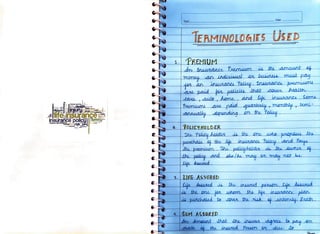 injury
life insurance
insurance policy
Date
TERMINOLOGIES USED
1. PREMIUM
An Insurance Premium is the amount of
money an individual or business must pay
for an Insurance Policy. Insurance premiums
are paid for policies that cover health
care, auto, home, and life insurance. Some
Premiums are paid quarterly, monthly, semi-
annually depending on the Policy
2. POLICYHOLDER
The Policy holder is the one who proposes the
purchase of the life insurance Policy and Pays
the premium. The policyholder is the owner of
the policy and she/he may or may not be
life assured.
3. LIFE ASSURED
Life Assured is the insured person. Life Assured
is the one for whom the life insurance plan
is purchased to cover the risk of untimely death.
4. SUM ASSURED
An Amount that the insurer agrees to pay on
death of the insured Person or